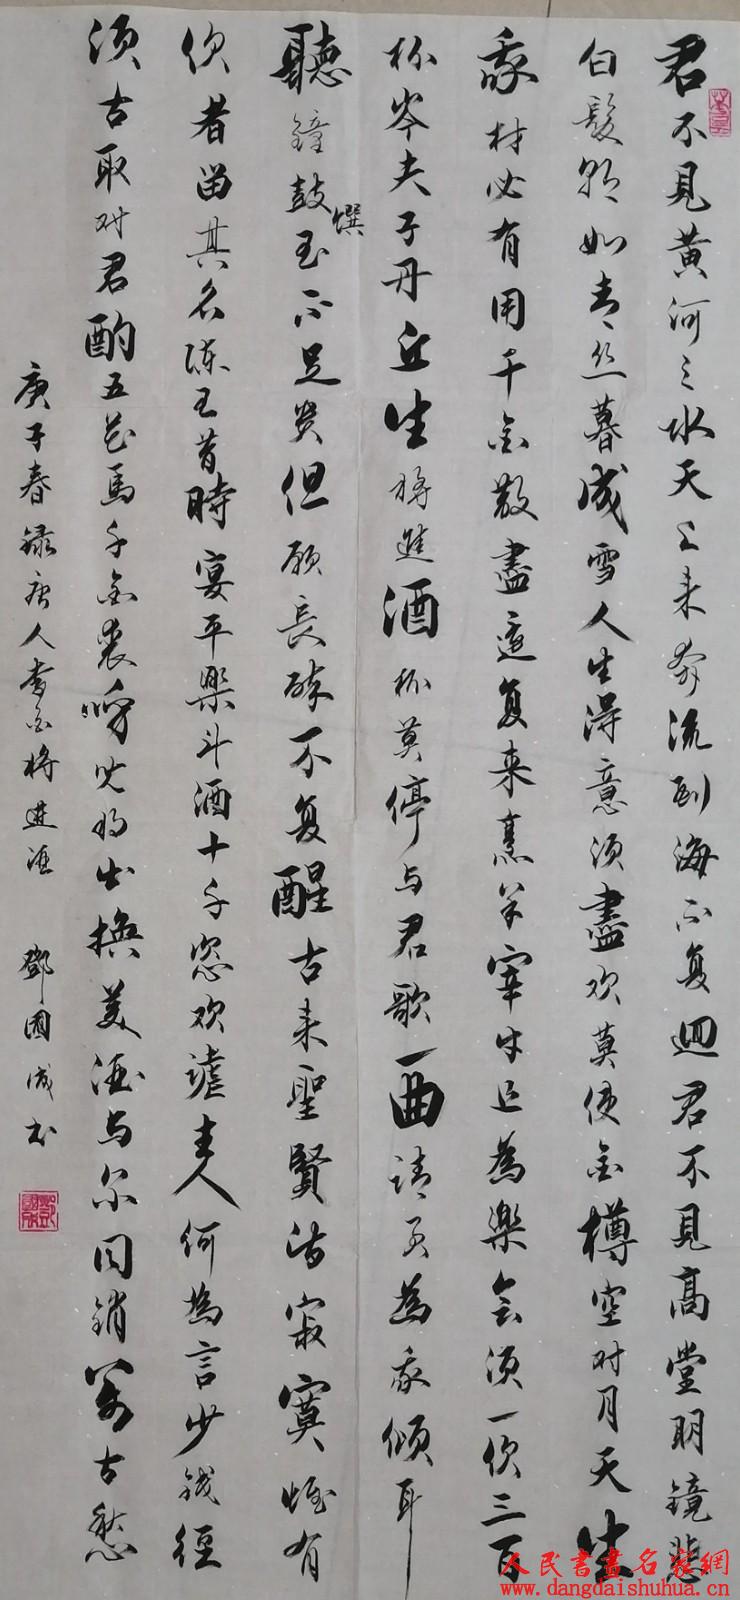 君不見黄河之水天上来奔流到海不复迴君不見高堂明鏡悲
白髮朝如青丝暮成雪人生得意须盡欢莫使金樽空对月天生
我材必有用千金散盡還复来烹羊宰牛且為樂会须一饮三百
杯岑夫子丹丘生將進酒杯莫停与君歌一曲請君為我傾耳
聽鐘鼓玉不足贵但愿長醉不复醒古来聖賢皆寂寞惟有
饌
饮者留其名陈王昔時宴平樂斗酒十千恣欢謔主人何為言少錢徑
须古取对君酌五花馬千金裘呼児将出換美酒与尔同銷萬古愁
庚子春録唐人李白将進酒 鄧國成书
人民書畫名家網
www.dangdaishuhua.cn